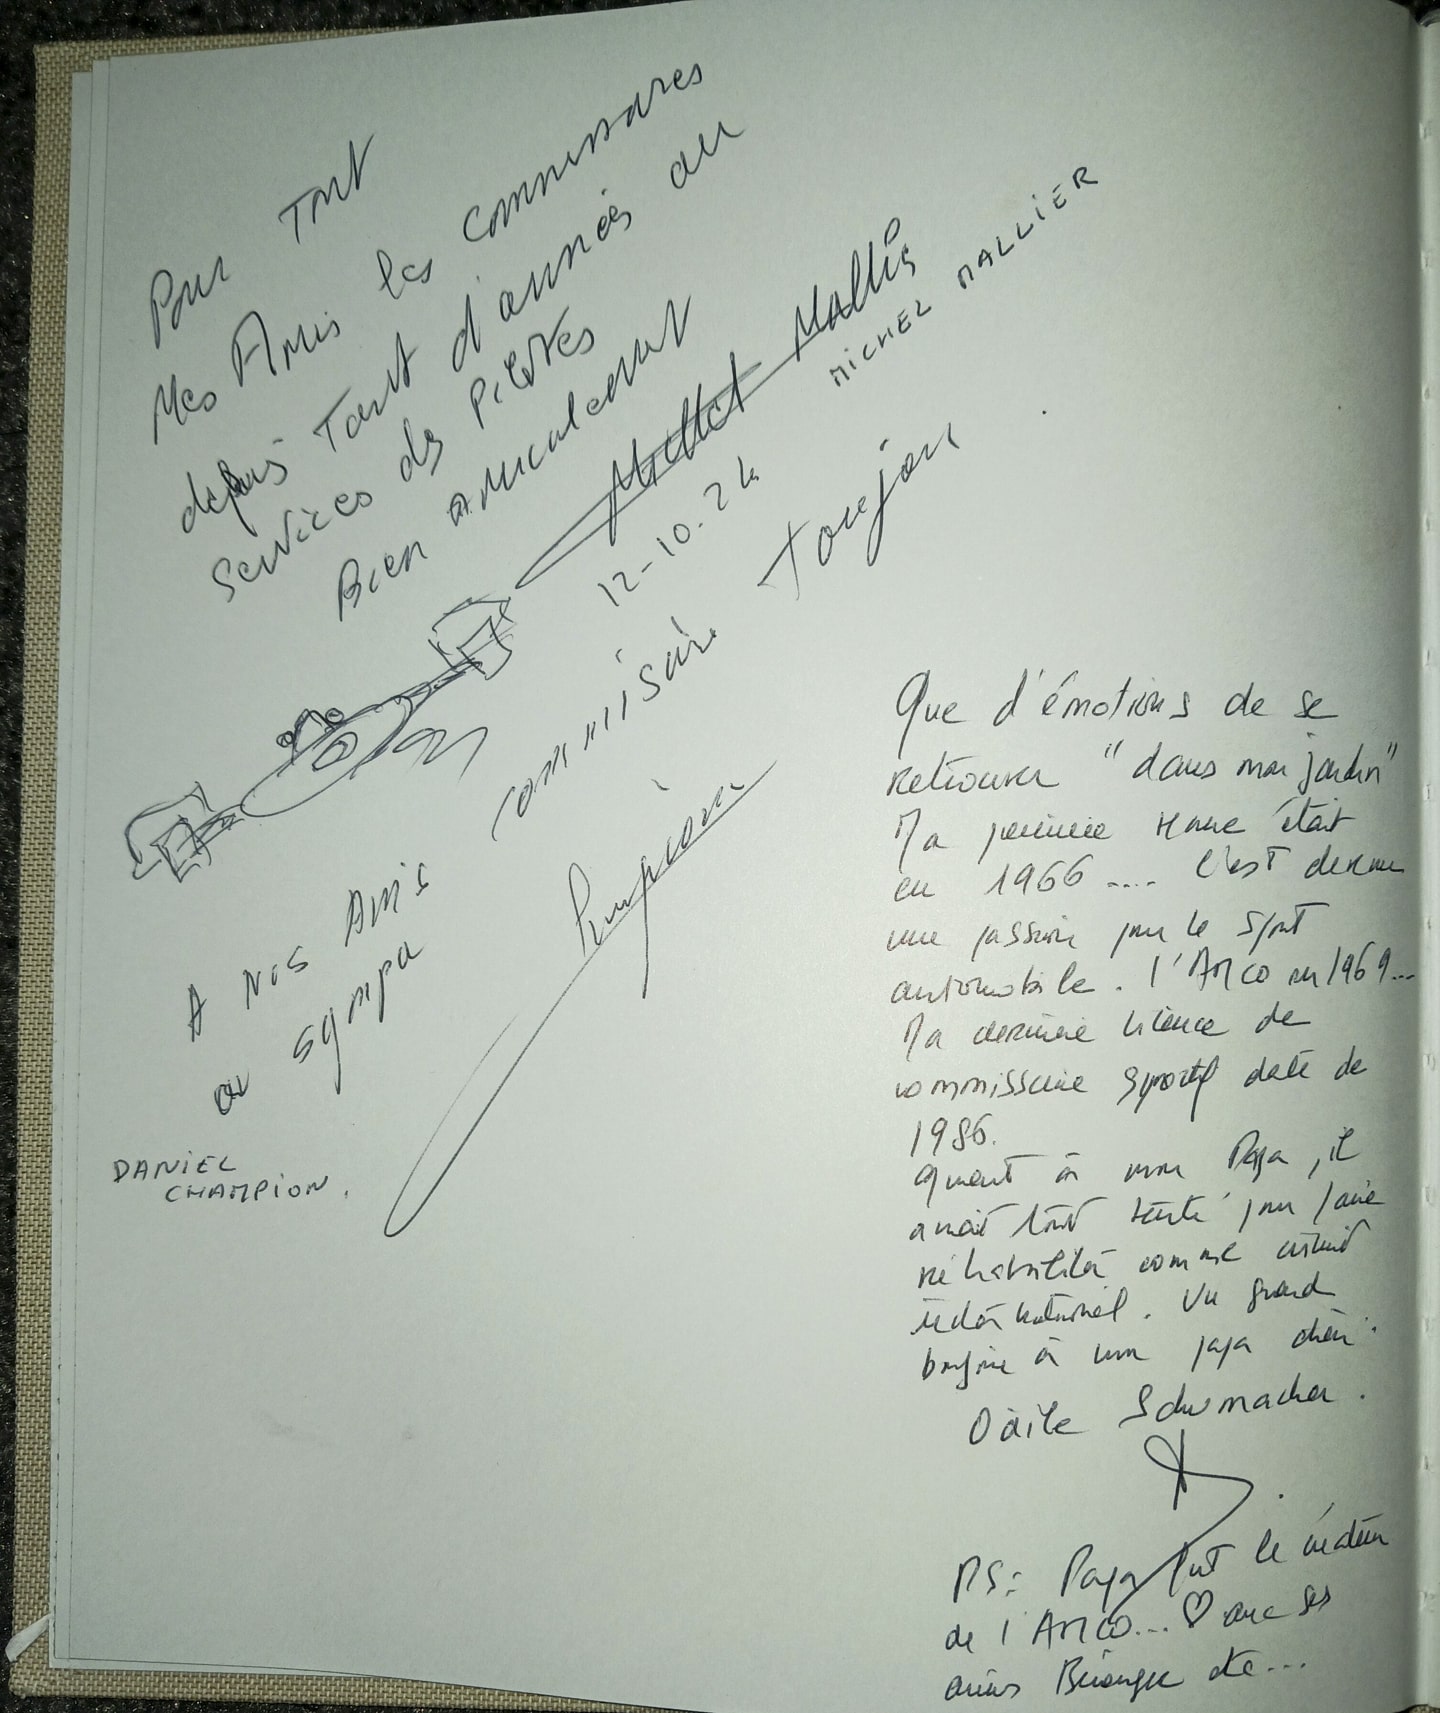 Pour Tout
Mes Amis les commissaires
depuis Tant d'années au
Services des Pilotes
Bien Amicalement
MICHEL MALLIER
12-10.24
A Nos Amis commissaire toujours
au sympa
DANIEL
CHAMPION.
Que d'émotions de se
retrouver "dans mon jardin"
Ma première était
en 1966.... C'est devenu
une passion pour le sport
automobile. l'AMCO en 1969...
Ma dernière licence de
commissaire sportif date de
1986.
Quant à mon Papa, il
avait tout tenté pour faire
réhabilité comme circuit
international. Un grand
à mon papa chéri.
Odile Schumacher.
PS: Papa fut le créateur
de l'AMCO...♡ avec ses
amis Béranger etc...